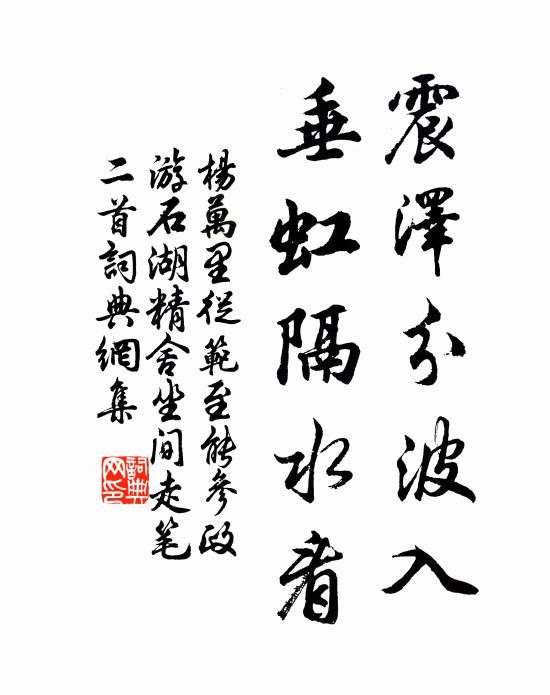 震澤分波入
垂虹隔水看
楊萬里從範至能參政
游石湖精舍坐間走笔
二首詞典網集
詞典網印